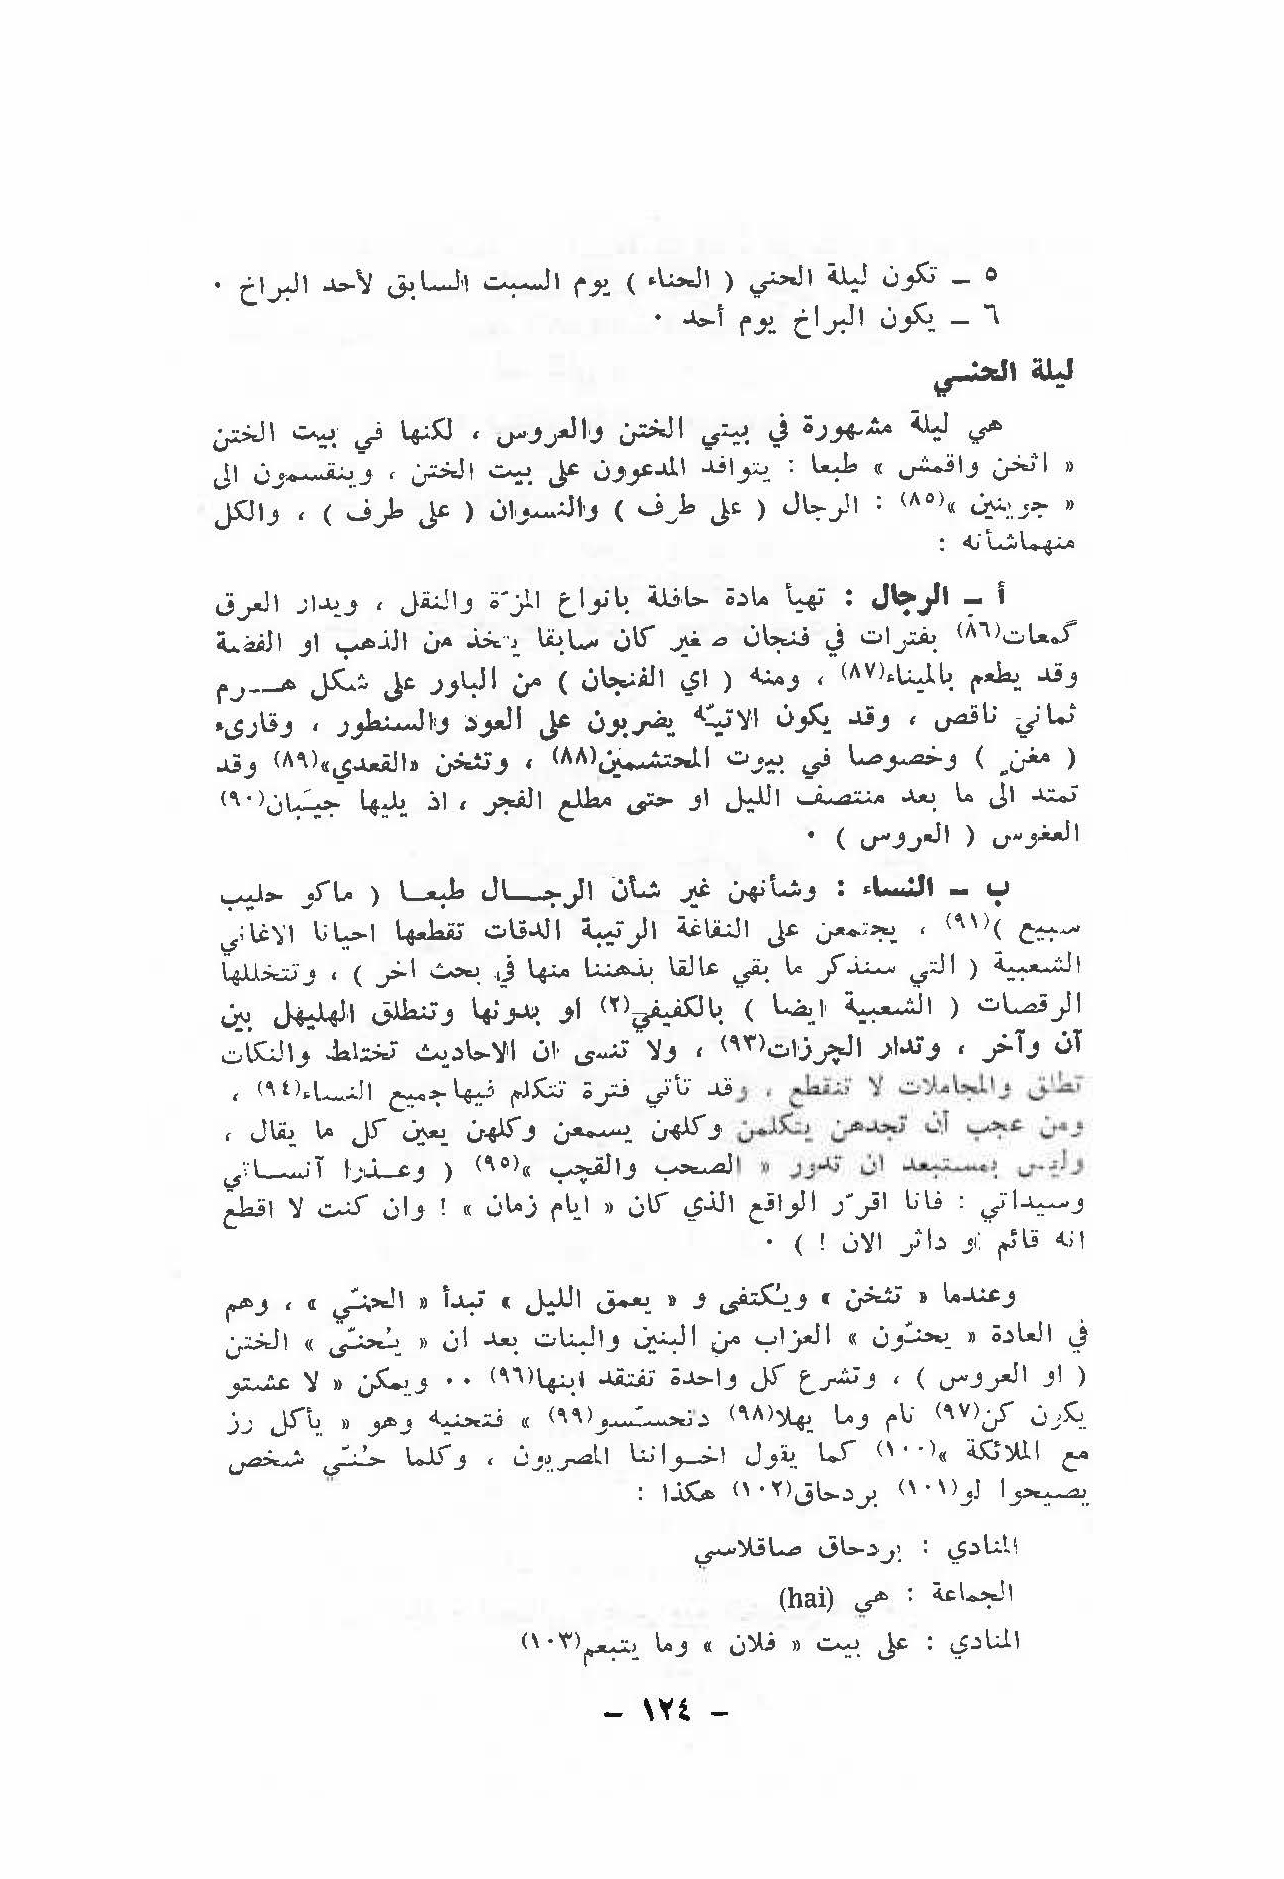 ٥ ـ تكون ليلة الحني ( الحناء ) يوم السبت السابق لأحد البراخ ٠
٦ ـ يكون البراخ يوم أحد ٠
ليلة الحنـي
هي ليلة مشهورة في بيتي الختن والعروس ، لكنها في بيت الختن
« اثخن واقمش » طبعا : يتوافد المدعوون على بيت الختن ، وينقسمون الى
« جوينين »(٨٥) : الرجال ( على طرف ) والنسوان ( على طرف ) ، والكل
منهماشأنه :
أ ـ الرجال : تهيأ مادة حافلة بانواع المزّة والنقل ، ويدار العرق
گمعات(٨٦) بفترات في فنجان صغير كان سابقا يتخذ من الذهب او الفضة
وقد يطعم بالميناء(٨٧) ، ومنه ( اي الفنجان ) من البلور على شكل هـــرم
ثماني ناقص ، وقد يكون الاتيّه يضربون على العود والسنطور ، وقارىء
( مغنٍ ) وخصوصا في بيوت المحتشمين(٨٨) ، وتثخن «القعدي»(٨٩) وقد
تمتد الى ما بعد منتصف الليل او حتى مطلع الفجر ، اذ يليها جيـَبان(٩٠)
العغوس ( العروس ) ٠
ب ـ النساء : وشأنهن غير شأن الرجـــال طبعــا ( ماكو حليب
سبيع )(٩١) ، يجتمعن على النقاغة الرتيبة الدقات تقطعها احيانا الاغاني
الشعبية ( التي سنذكر ما بقي عالقا بذهننا منها في بحث اخر ) ، وتتخللها
الرقصات ( الشعبية ايضا ) بالكفيفي(٢) او بدونها وتنطلق الهليهل بين
آن وآخر ، وتدار الچرزات(٩٣) ، ولا تنسى ان الاحاديث تختلط والنكات
تطلق والمجاملات لا تنقطع ، وقد تأتي فترة تتكلم فيهاجميع النساء(٩٤) ،
ومن عجب أن تجدهن يتكلمن وكلهن يسمعن وكلهن يعين كل ما يقال ،
وليس بمستبعد ان تدور « الصحب والقچب »(٩٥) ( وعـــذرا آنســـاتي
وسيداتي : فانا اقرّر الواقع الذي كان « ايام زمان » ! وان كنت لا اقطع
انه قائم او داثر الان ! ) ٠
وعندما « تثخن » ويُكتفى و « يعمق الليل » تبدأ « الحنّي » ، وهم
في العادة « يحنـّون » العزاب من البنين والبنات بعد ان « يـُحنـّى » الختن
( او العروس ) ، وتشرع كل واحدة تفتقد ابنها(٩٦) ٠٠ ويمكن « لا عشتو
يكون كن(٩٧) نام وما يهلا(٩٨) دنحسـّسو(٩٩) » فتحنيه وهو « يأكل رز
مع الملائكة »(١٠٠) كما يقول اخـواننا المصريون ، وكلما حـُنـّي شخص
يصيحوا لو(١٠١) بردحاق(١٠٢) هكذا :
المنادي : بردحاق صاقلاسي
الجماعة : هي (hai)
المنادي : على بيت « فلان » وما يتبعم(١٠٣)
ـ ١٢٤ ـ